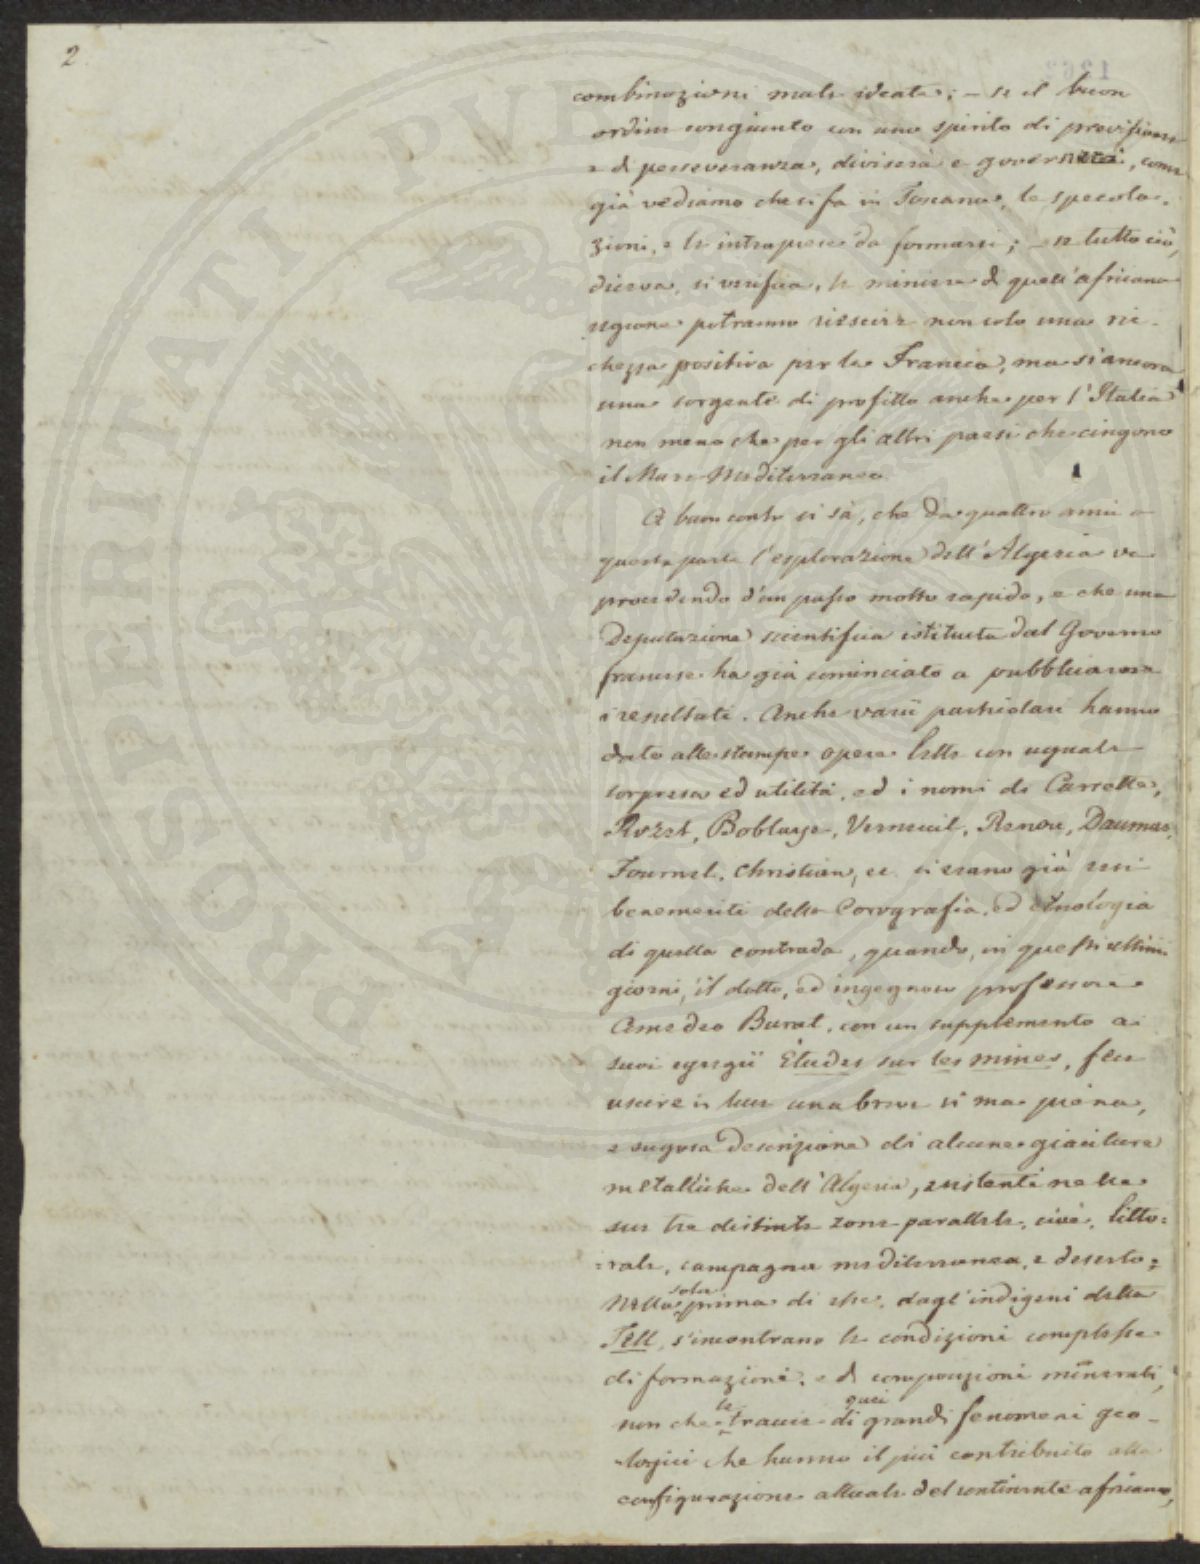 2
combinazioni male ideate; – se il buon
ordine congiunto con uno spirito di previsione
e di perseveranza, diviserà e governerà, come
già vediamo che si fa in Toscana, le specola-
zioni, e le intraprese da formarsi; – se tutto ciò,
diceva, si verifica, le miniere di quell'africana
regione potranno riescire non solo una ric-
chezza positiva per la Francia, ma si ancora
una sorgente di profitto anche per l'Italia
non meno che per gli altri paesi che cingono
il Mare Mediterraneo.
A buon conto si sà, che da quattro anni a
questa parte l'esplorazione dell'Algeria va
procedendo d'un passo molto rapido, e che una
Deputazione scientifica istituita dal Governo
francese ha già cominciato a pubblicarne
i resultati. Anche varii particolari hanno
dato alle stampe opere lette con uguale
sorpresa ed utilità, ed i nomi di Carrette,
Rozet, Boblaye, Verneuil, Renou, Daumas,
Fournel, Christian, ec. si erano già resi
benemeriti della Corografia, ed etnologia
di quella contrada, quando, in questi ultimi
giorni, il dotto, ed ingegnoso professore
Amedeo Burat, con un supplemento a'
suoi egregii Études sur les mines, fece
uscire in luce una breve si ma piena,
e sugosa descrizione di alcune giaciture
metalliche dell'Algeria, esistenti nelle
sue tre distinte zone parallele, cioè, litto=
=rale, campagna mediterranea, e deserto.
Nella sola prima di esse, dagl'indigeni detta
Tell, s'incontrano le condizioni complesse
di formazioni, e di composizioni minerali,
non che le tracce di quei grandi fenomeni geo-
logici che hanno il più contribuito alla
configurazione attuale del continente africano,